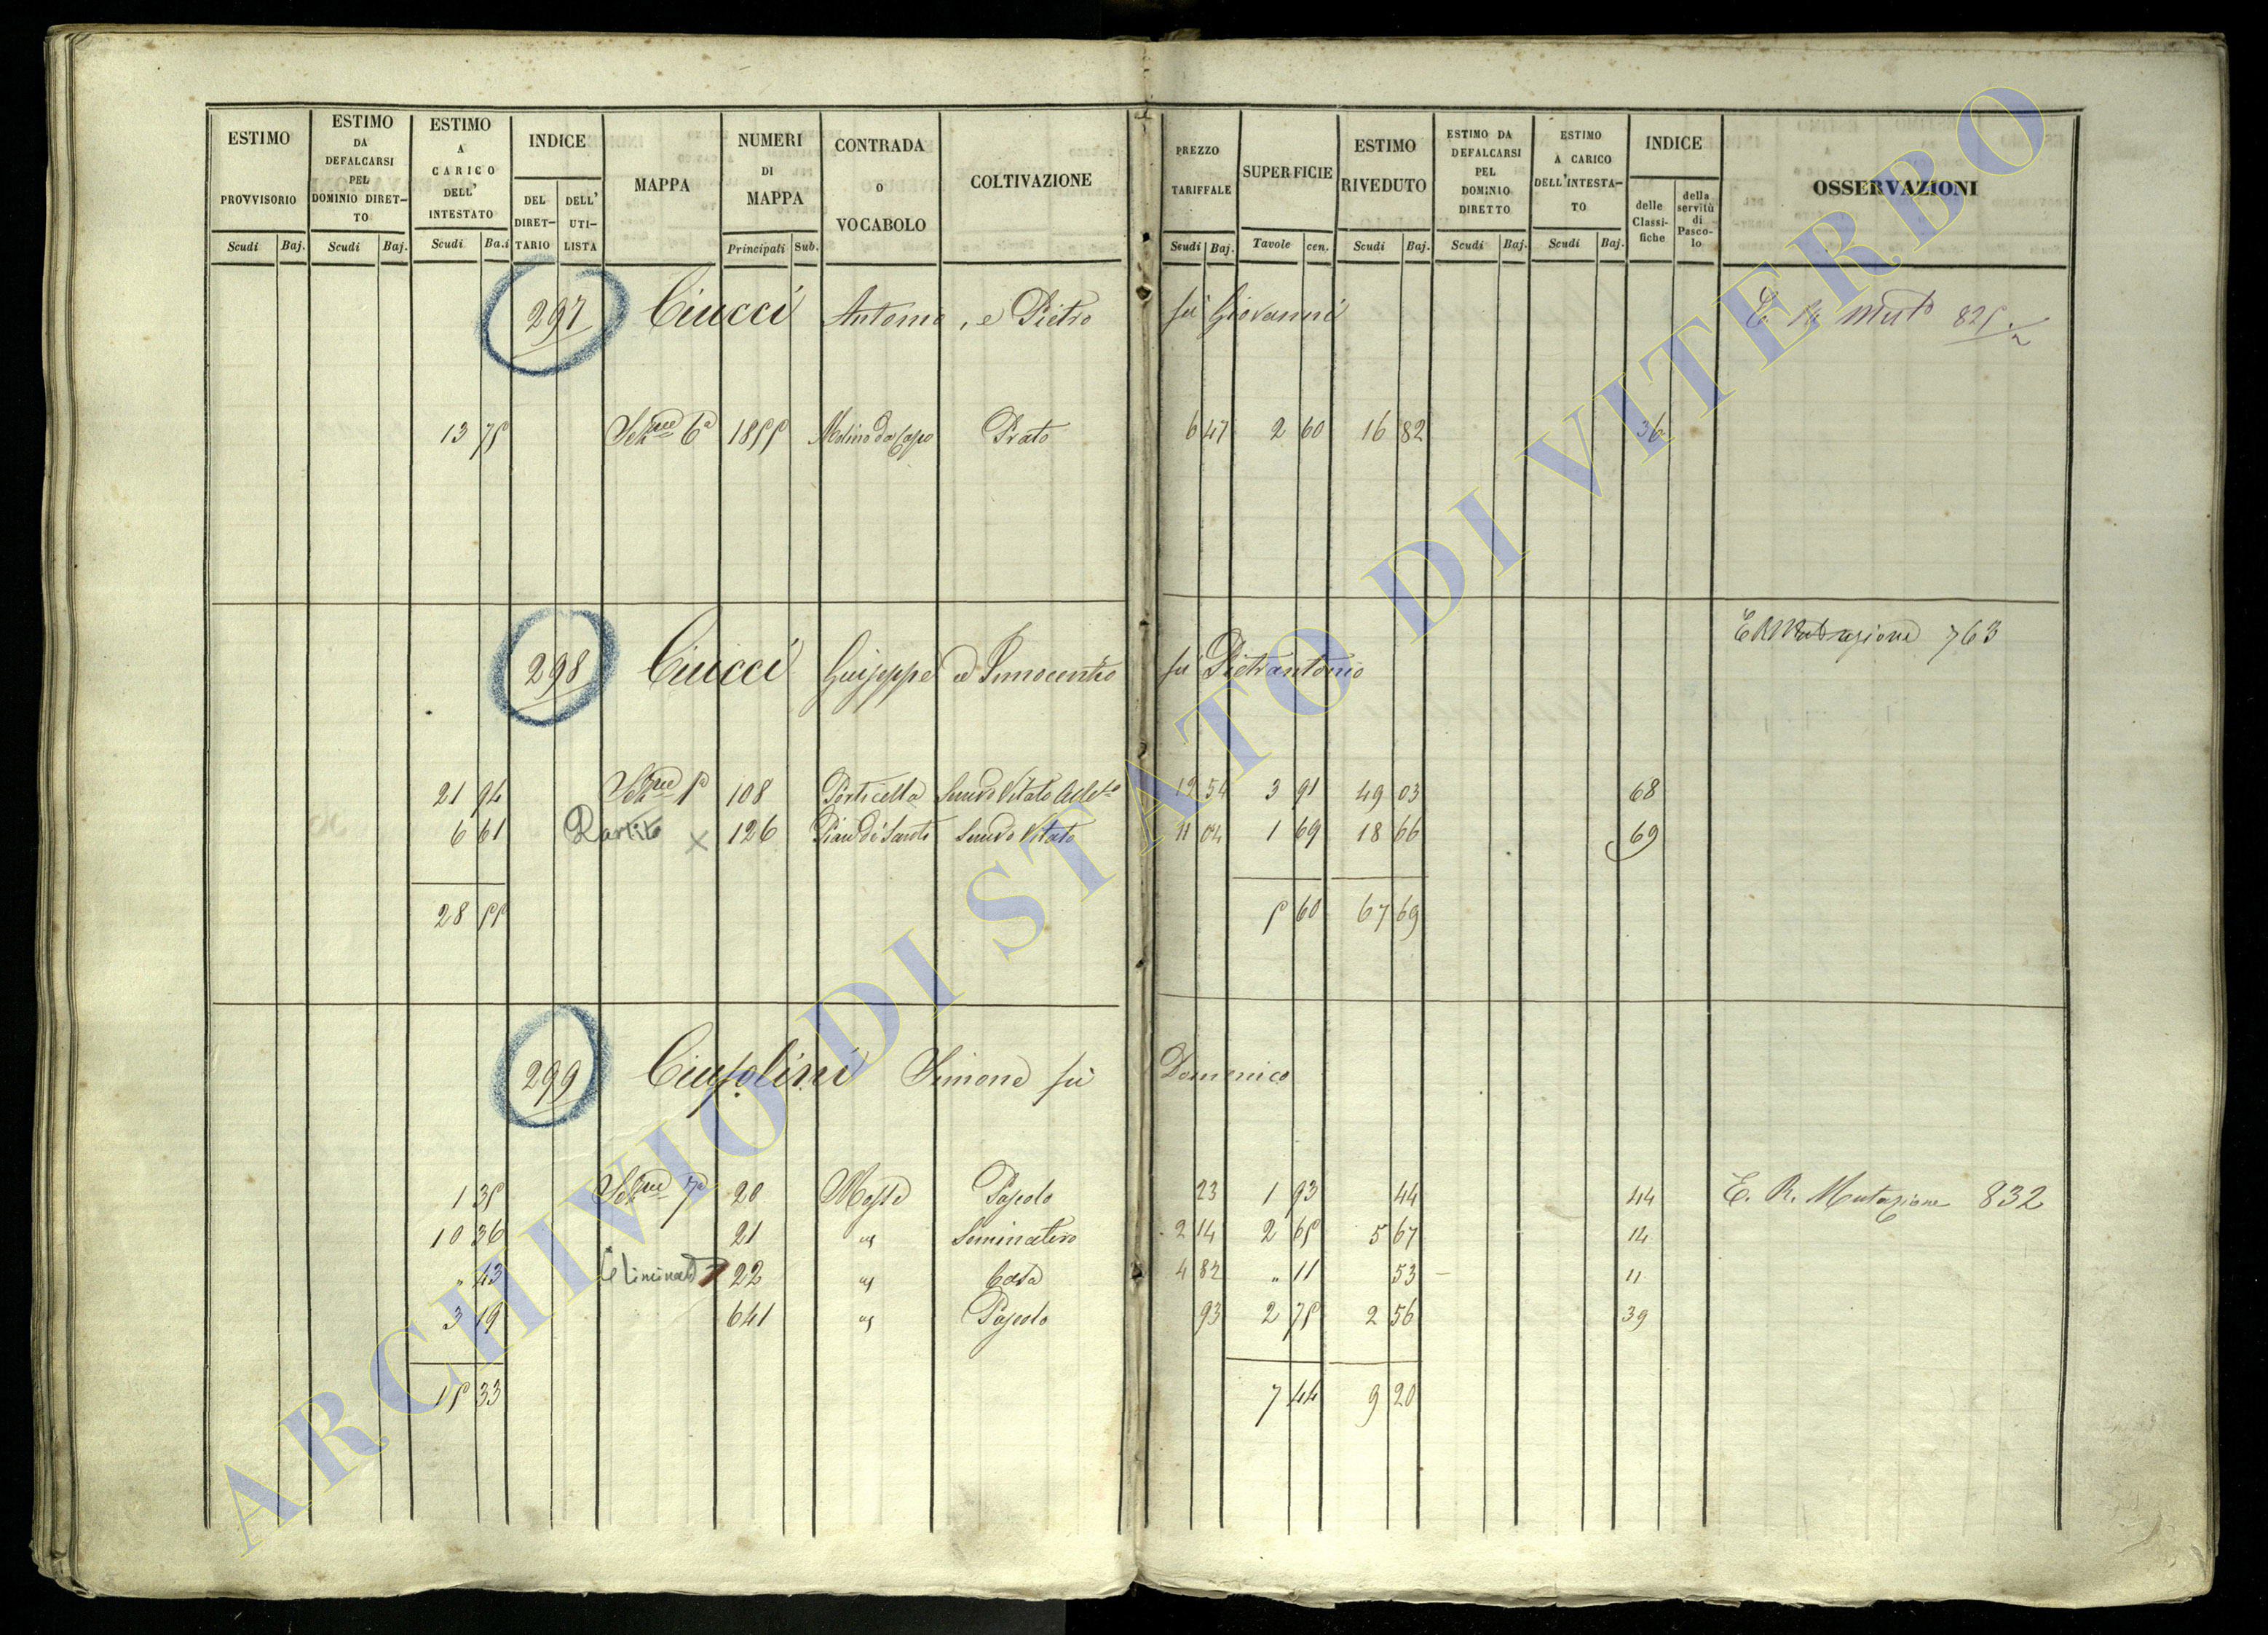 ESTIMO PROVVISORIO Scudi Baj.
ESTIMO DA DEFALCARSI PEL DOMINIO DIRET-TO Scudi Baj.
ESTIMO A CARICO DELL' INTESTATO Scudi Ba.i
INDICE DEL DIRET-TARIO DELL' UTI-LISTA
MAPPA
NUMERI DI MAPPA Principati Sub.
CONTRADA O VOCABOLO
COLTIVAZIONE
PREZZO TARIFFALE Scudi Baj.
SUPERFICIE Tavole cen.
ESTIMO RIVEDUTO Scudi Baj.
ESTIMO DA DEFALCARSI PEL DOMINIO DIRETTO Scudi Baj.
ESTIMO A CARICO DELL'INTESTA-TO Scudi Baj.
INDICE delle Classi-fiche della servitù di Pasco-lo
OSSERVAZIONI
297 Ciucci Antonio, e Pietro fù Giovanni E R Mut 825
13 75 Sezne 6a 1855 Molino da Capo Prato 6 47 2 60 16 82 36
E R Mutazione 763
298 Ciucci Giuseppe ed Innocenzo fù Pietrantonio
21 94 Sezne 5 108 Porticella Semvo Vitato 12 54 3 91 49 03 68
6 61 Partito x 126 Pian de Santi Semvo Vitato 11 04 1 69 18 66 69
28 55 5 60 67 69
299 Ciufolini Simone fù Domenico
1 35 Sezne 7a 20 Pascolo 23 1 93 44 44 E. R. Mutazione 832
10 36 21 " Seminativo 2 14 2 65 5 67 14
" 43 Eliminato 22 " Casa 4 82 " 11 53 11
3 19 641 " Pascolo 93 2 75 2 56 39
15 33 7 44 9 20
ARCHIVIO DI STATO DI VITERBO